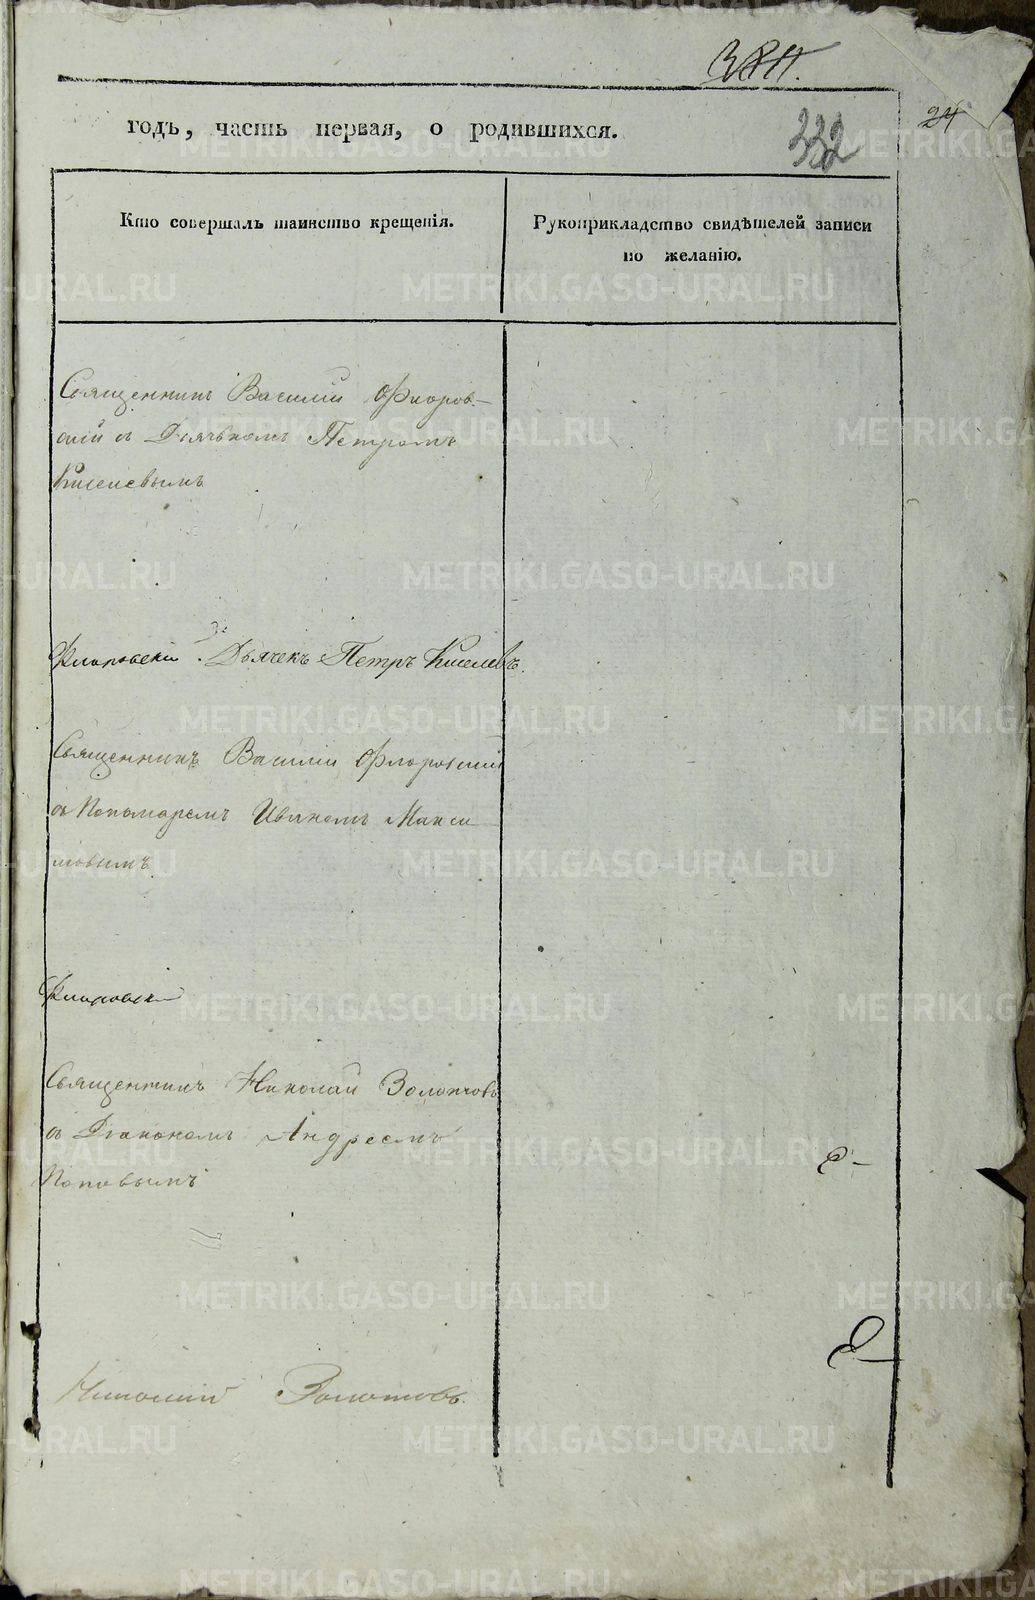 332
24
годъ, часть первая, о родившихся.
Кто совершалъ таинство крещенія.
Рукоприкладство свидѣтелей записи
по желанію.
Священникъ Василій Флоров-
скій съ Дьячькомъ Петромъ
Киселевымъ
Флоровскій. Дьячекъ Петръ Киселевъ.
Священникъ Василій Флоровскій
съ Пономаремъ Иваномъ Макси
мовымъ
Флоровскій
Священникъ Николай Золотовъ
съ Діакономъ Андреемъ
Поповымъ
Николай Золотовъ.
METRIKI.GASO-URAL.RU